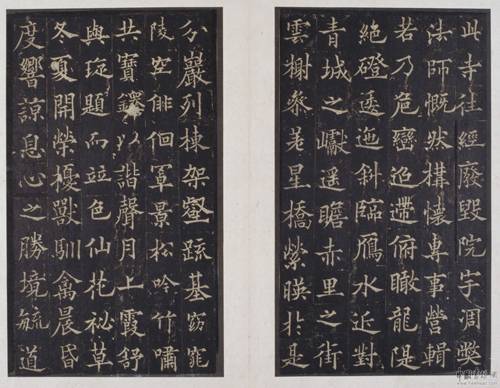 此寺往經廢毀院宇凋弊
法師慨然構懷專事營輯
若乃危巒迢遰俯瞰龍隄
絕磴逶迤斜臨鴈水近對
青城之巘遙瞻赤里之街
雲榭叅差星橋縈暎於是
分巖列棟架壑疏基窈窕
陵空俳佪罩景松吟竹嘯
共寶鐸以諧聲月上霞舒
與琁題而竝色仙花祕草
冬夏開榮擾獸馴禽晨昏
度響諒息心之勝境毓道